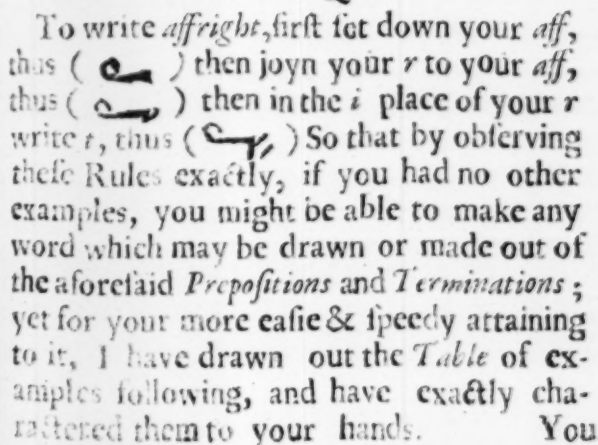 To write affright, firſt ſet down your aff,
thus ( ) then joyn your r to your aff,
thus ( ) then in the i place of your r
write t, thus ( ) So that by obſerving
theſe Rules exactly, if you had no other
examples, you might be able to make any
word which may be drawn or made out of
the aforeſaid Prepoſitions and Terminations ;
yet for your more eaſie & ſpeedy attaining
to it, I have drawn out the Table of ex-
amples following, and have exactly cha-
ractered them to your hands. You